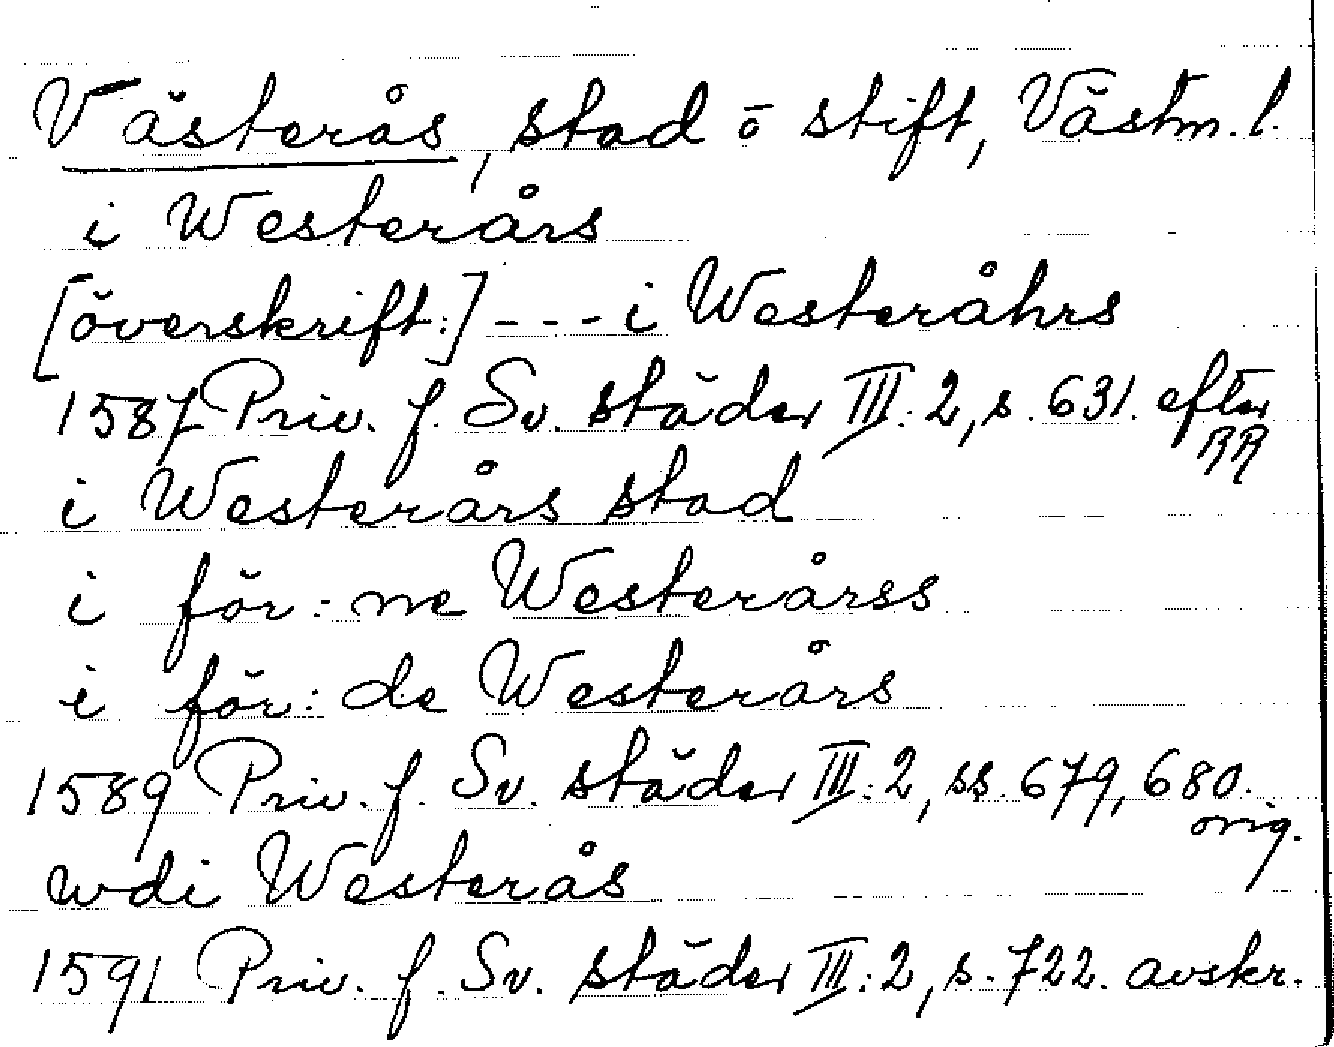 Västerås, stad o stift, Västm. l.
i Westerårs
[överskrift:] --- i Westeråhrs
1587 Priv. f. Sv. städer III: 2, s. 631. efter RR
i Westerårs stad
i för:ne Westerårss
i för:de Westerårs
1589 Priv. f. Sv. städer III: 2, ss. 679, 680. orig.
wdi Westerås
1591 Priv. f. Sv. städer III: 2, s. 722. avskr.